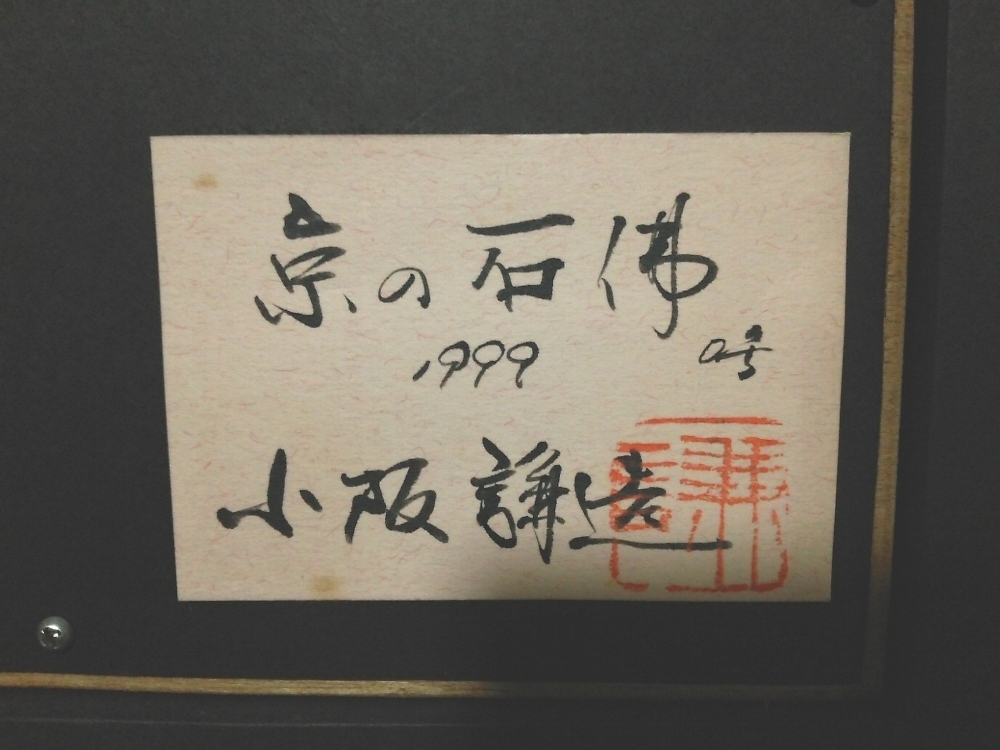 京の石佛
1999
小阪謙造
謙